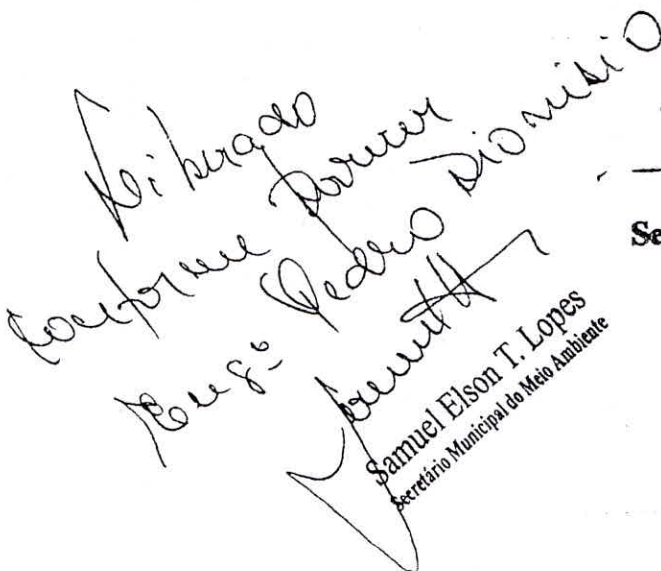 Liberado
conforme Parecer
Engº Pedro Dionisio
Samuel Elson T. Lopes
Secretário Municipal do Meio Ambiente
Se